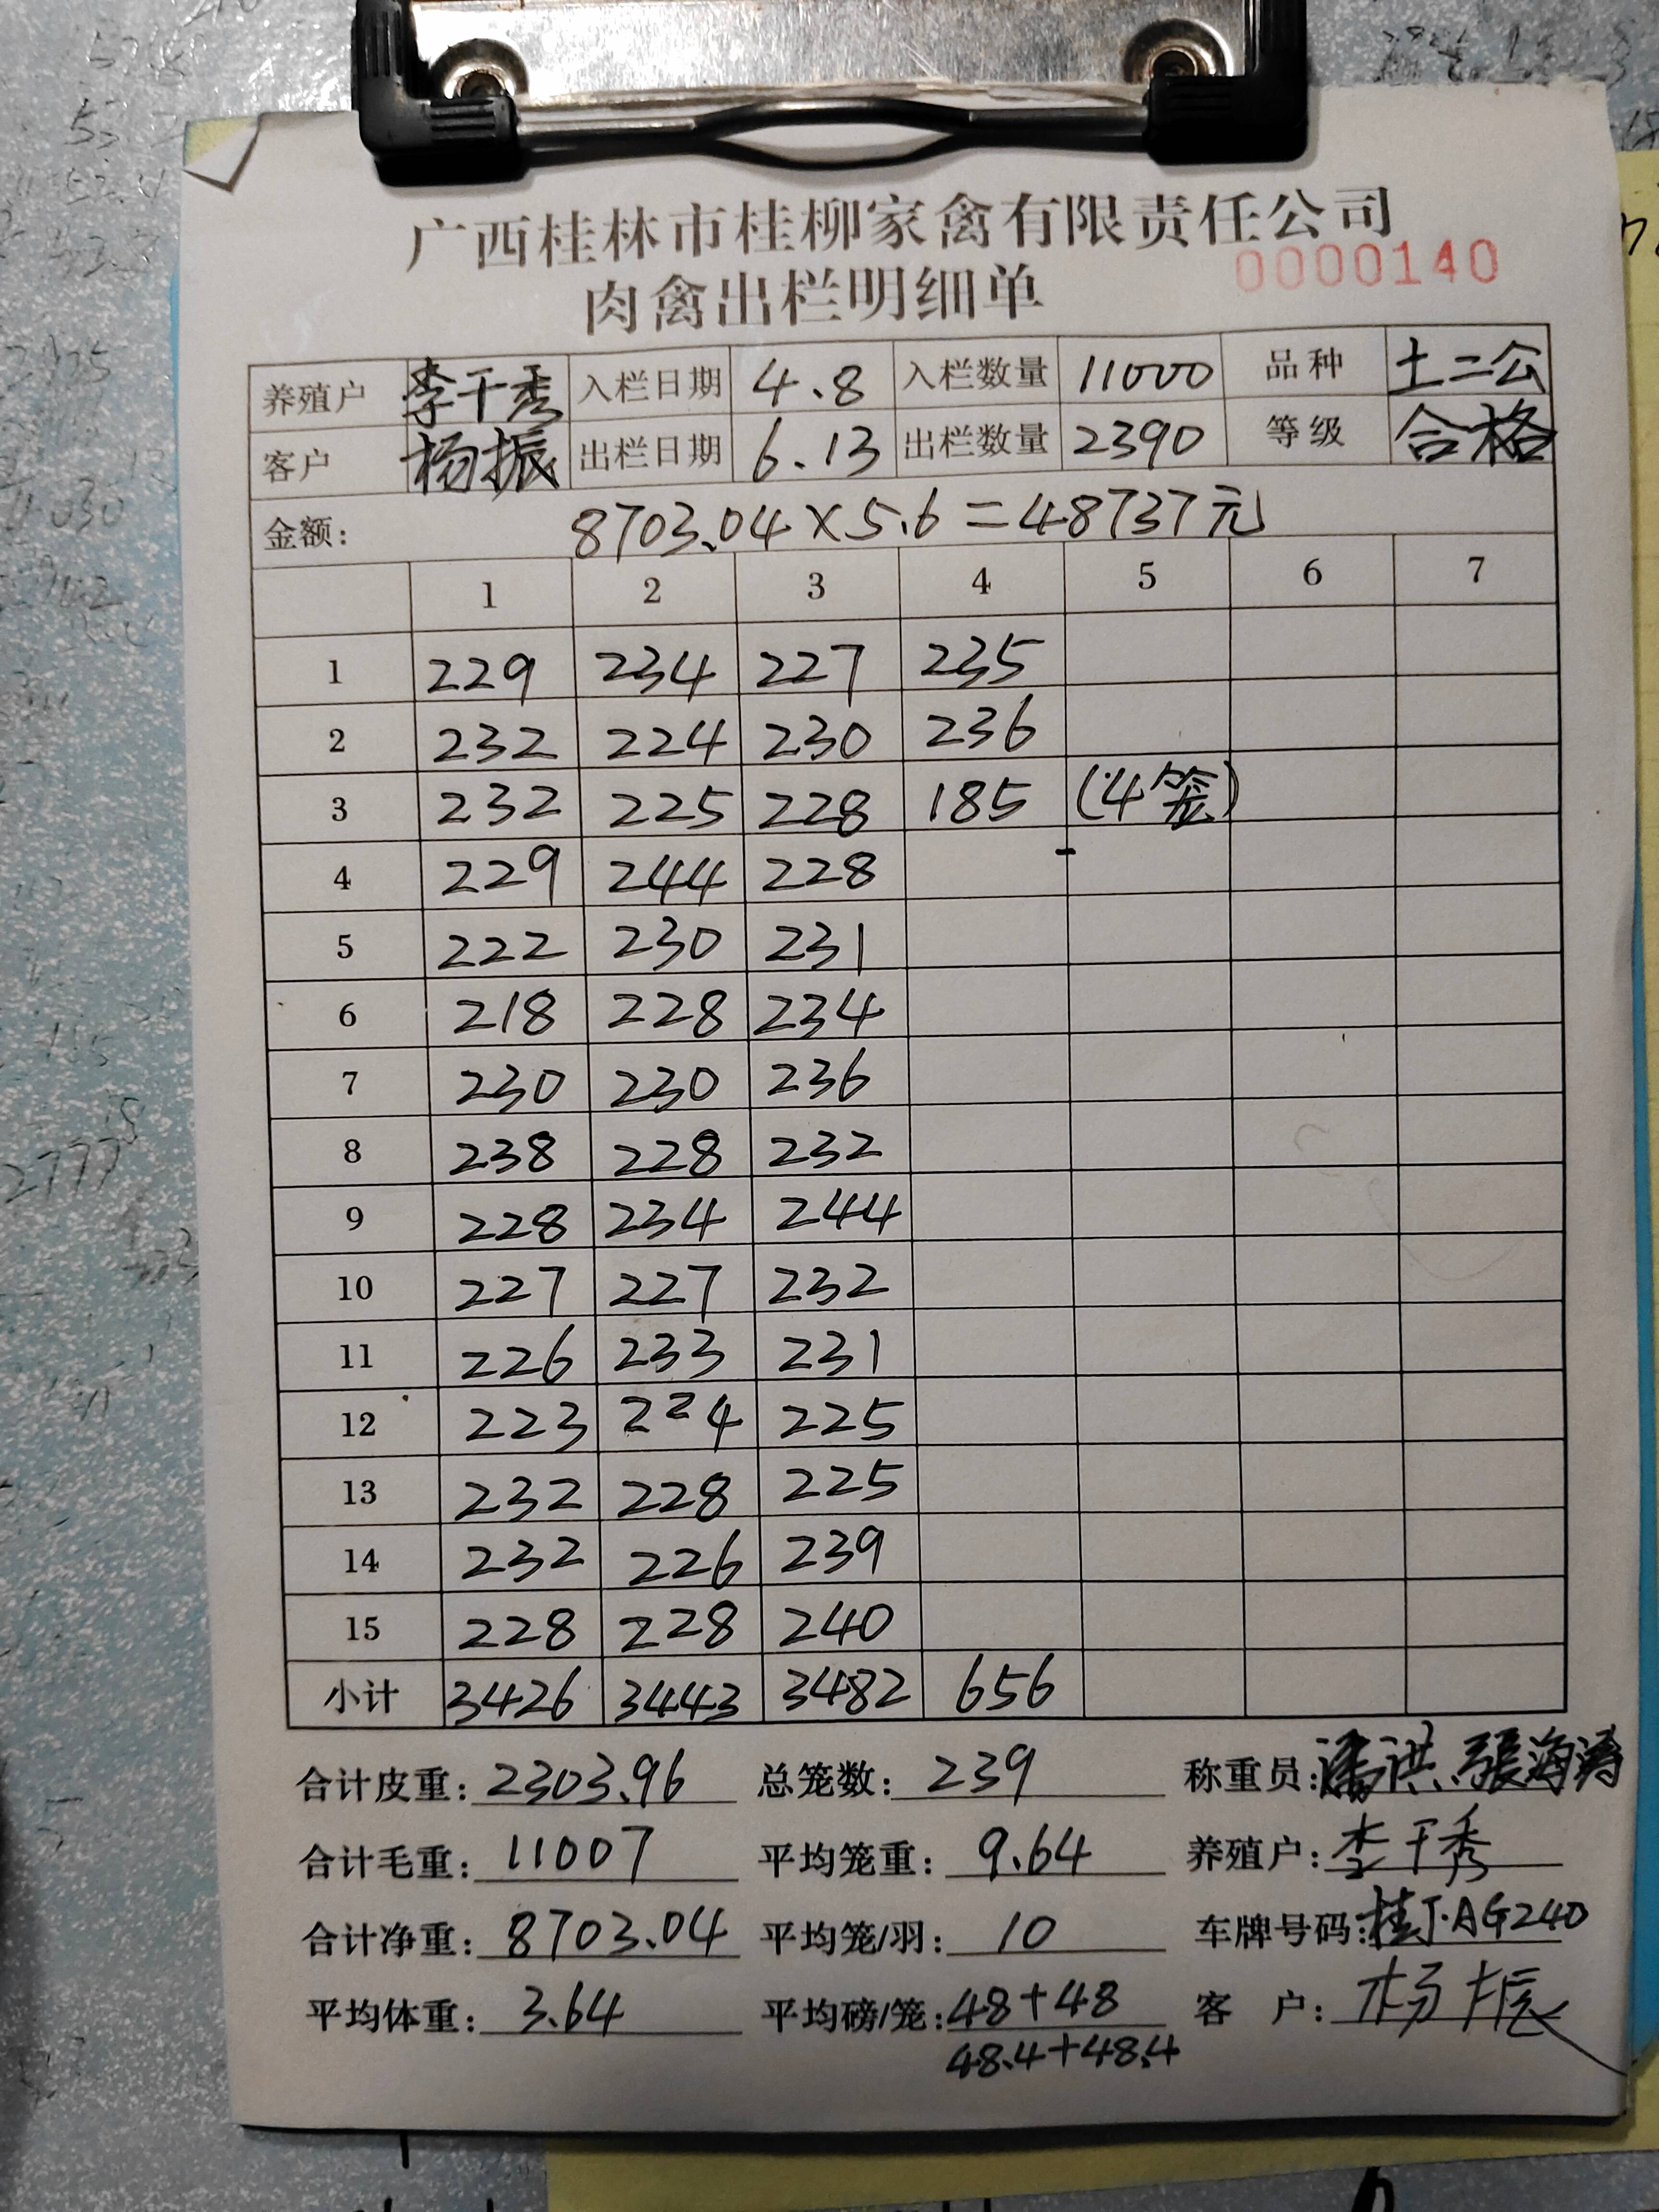 广西桂林市桂柳家禽有限责任公司
0000140
肉禽出栏明细单
养殖户 李干秀 入栏日期 4.8 入栏数量 11000 品种 土二公
客户 杨振 出栏日期 6.13 出栏数量 2390 等级 合格
金额: 8703.04×5.6=48737元
1 2 3 4 5 6 7
1 229 234 227 235
2 232 224 230 236
3 232 225 228 185 (4笼)
4 229 244 228
5 222 230 231
6 218 228 234
7 230 230 236
8 238 228 232
9 228 234 244
10 227 227 232
11 226 233 231
12 223 224 225
13 232 228 225
14 232 226 239
15 228 228 240
小计 3426 3443 3482 656
合计皮重: 2303.96 总笼数: 239 称重员: 潘洪、張海涛
合计毛重: 11007 平均笼重: 9.64 养殖户: 李干秀
合计净重: 8703.04 平均笼/羽: 10 车牌号码: 桂J·AG240
平均体重: 3.64 平均磅/笼: 48+48 客 户: 杨振
48.4+48.4